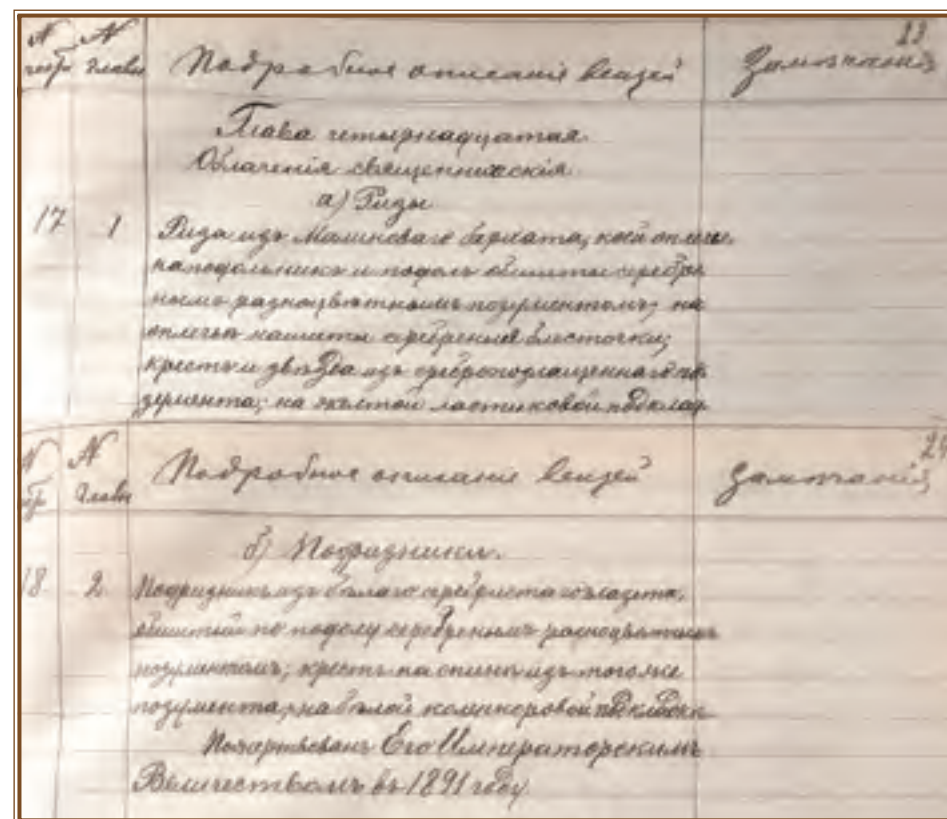 23
№ № Подробное описаніе вещей Замѣчанія
главы
Глава четырнадцатая
Облаченія священническія
а) Ризы
17 1 Риза изъ Малиноваго бархата, коей оплечье,
наподольникъ и подолъ обшиты серебре
нымъ разноцвѣтнымъ позументомъ; на
оплечьѣ нашиты серебреные блесточки;
крестъ и звѣзда изъ сребропозлащеннаго по
зумента; на желтой ластиковой подклад
24
№ № Подробное описаніе вещей Замѣчанія
главы
б) Подризники.
18 2 Подризникъ изъ бѣлаго серебристаго глазета,
обшитый по подолу серебренымъ разноцвѣтнымъ
позументомъ; крестъ на спинѣ изъ того же
позумента, на бѣлой коленкоровой подкладкѣ
Пожертвованъ Его Императорскимъ
Величествомъ въ 1891 году